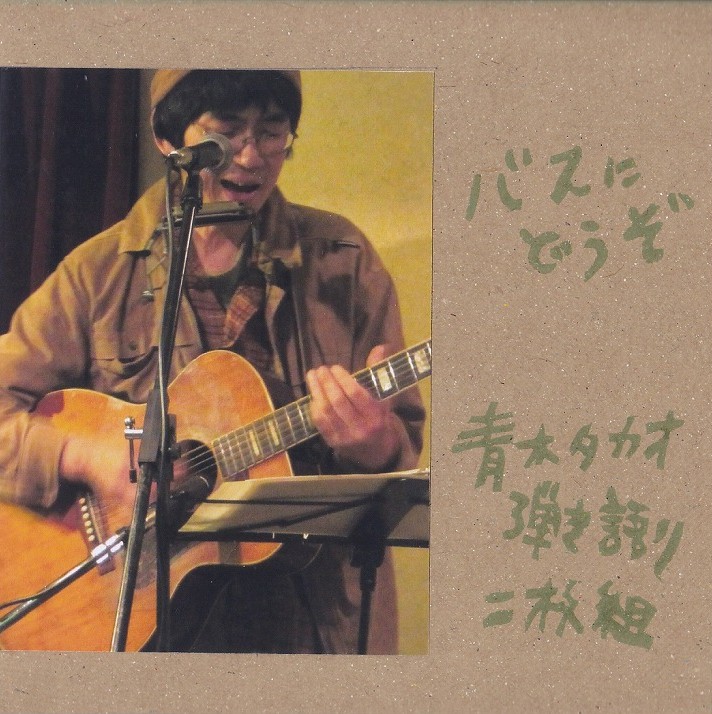 バスに
どうぞ
青木タカオ
弾き語り
二枚組